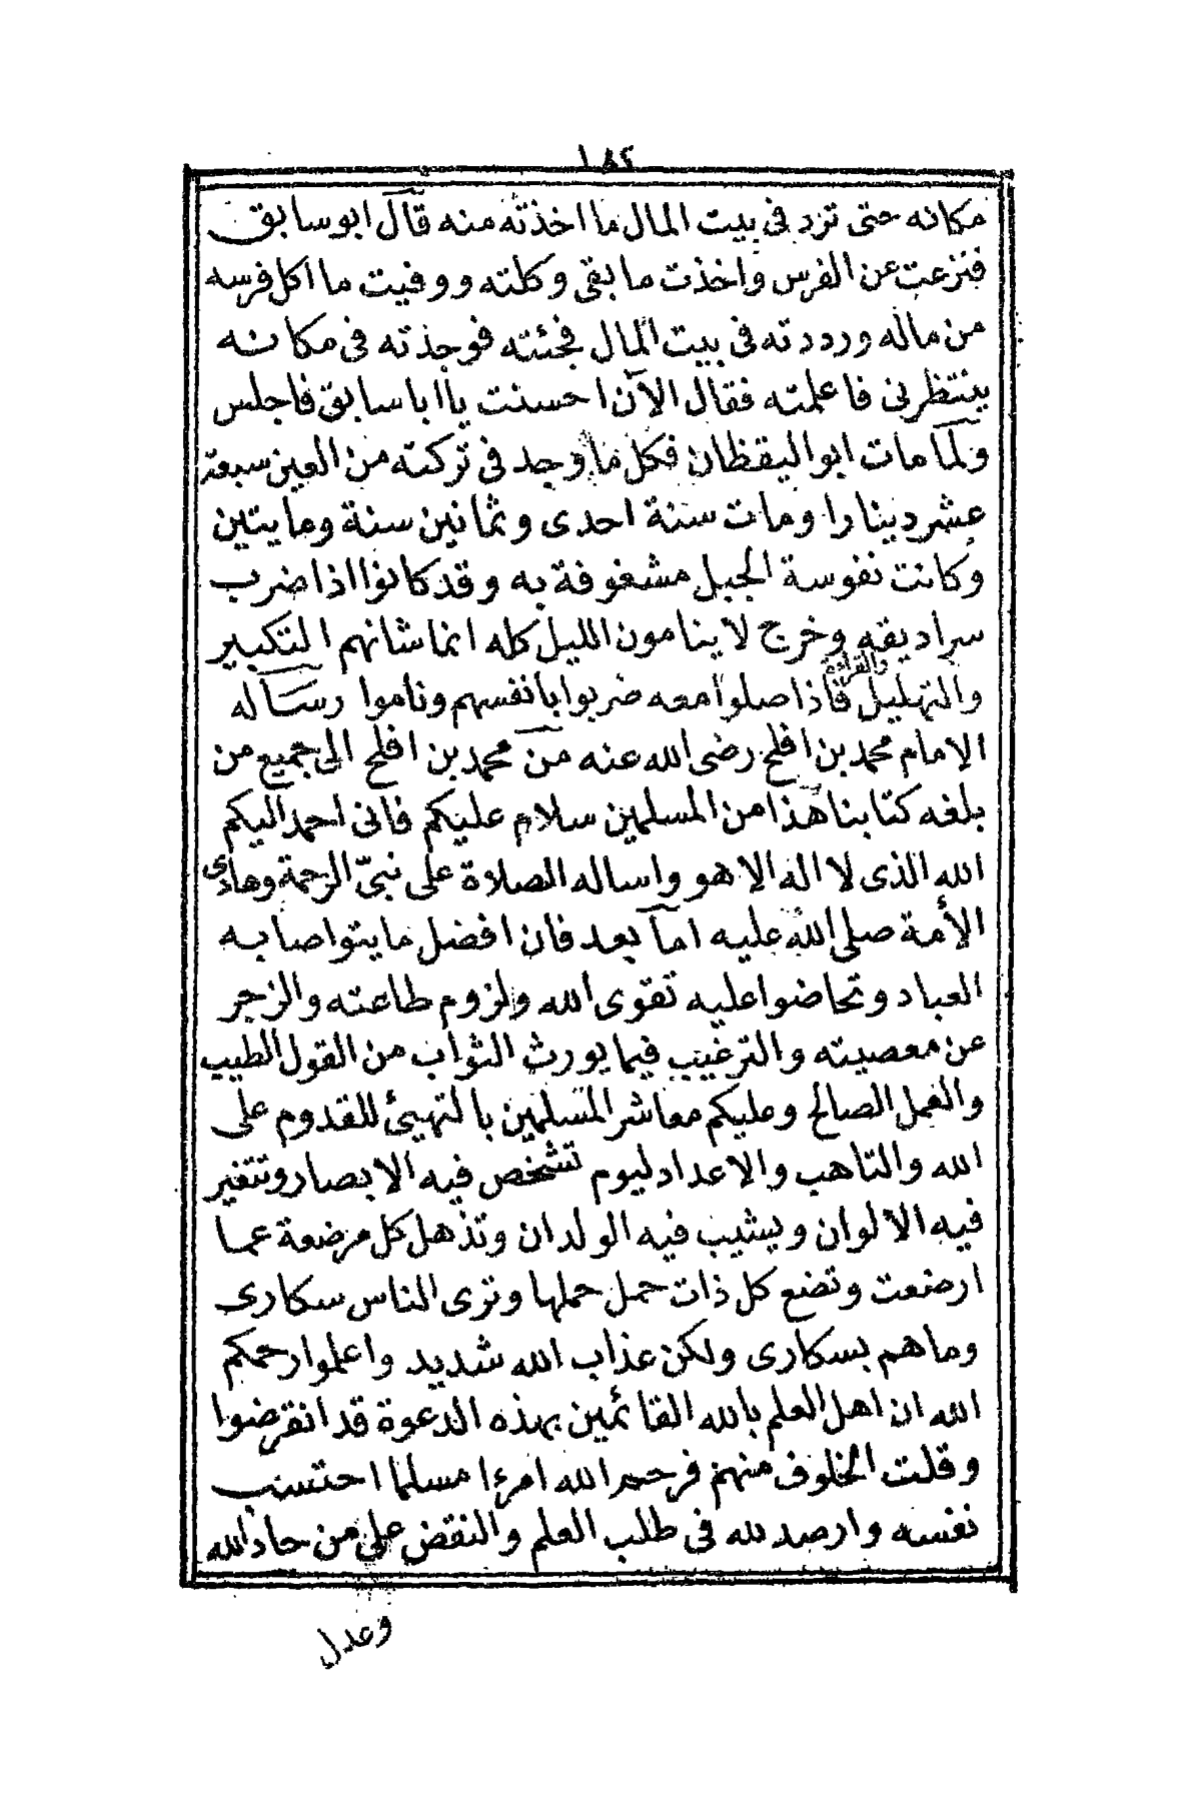 ١٨٢
مكانه حتى ترد فى بيت المال ما اخذته منه قال ابو سابق
فنزعت عن الفرس واخذت ما بقى وكلته ووفيت ما اكل فرسه
من ماله ورددته فى بيت المال فجئته فوجدته فى مكانه
ينتظرنى فاعلمته فقال الآن احسنت يا اباسابق فاجلس
ولما مات ابو اليقظان فكل ما وجد فى تركته من العين سبعة
عشر دينارا ومات سنة احدى وثمانين سنة ومايتين
وكانت نفوسة الجبل مشغوفة به وقد كانوا اذا ضرب
سراديقه وخرج لا ينامون الليل كله انما شانهم التكبير
والتهليل والقراءة فاذا صلوا معه ضربوا بانفسهم وناموا رسالة
الامام محمد بن افلح رضى الله عنه من محمد بن افلح الى جميع من
بلغه كتابنا هذا من المسلمين سلام عليكم فانى احمد اليكم
الله الذى لا اله الا هو واساله الصلاة على نبىّ الرحمة وهادى
الأمة صلى الله عليه اما بعد فان افضل ما يتواصا به
العباد وتحاضوا عليه تقوى الله ولزوم طاعته والزجر
عن معصيته والترغيب فيما يورث الثواب من القول الطيب
والعمل الصالح وعليكم معاشر المسلمين بالتهيئ للقدوم على
الله والتاهب والاعداد ليوم تشخص فيه الابصار وتتغير
فيه الالوان ويشيب فيه الولدان وتذهل كل مرضعة عما
ارضعت وتضع كل ذات حمل حملها وترى الناس سكارى
وما هم بسكارى ولكن عذاب الله شديد واعلموا رحمكم
الله ان اهل العلم بالله القائمين بهذه الدعوة قد انقرضوا
وقلت الخلوف منهم فرحم الله امرءا مسلما احتسب
نفسه وارصد لله فى طلب العلم والنقض على من حاد الله
وعدل